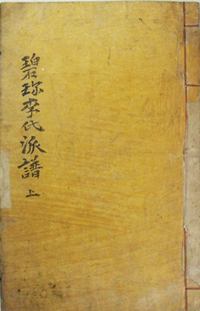 碧珍李氏派譜 上